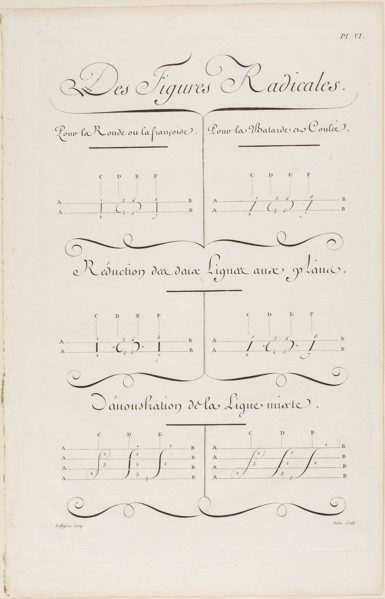 Pl. VI.
Des Figures Radicales.
Pour la Ronde ou la françoise. Pour la Batarde et Coulée.
C D E F C D E F
A B A B
A B A B
Réduction des deux Lignes aux plans.
C D E F C D E F
A B A B
A B A B
Démonstration de la Ligne mixte.
C D E C D E
A B A B
A B A B
A B A B
A B A B